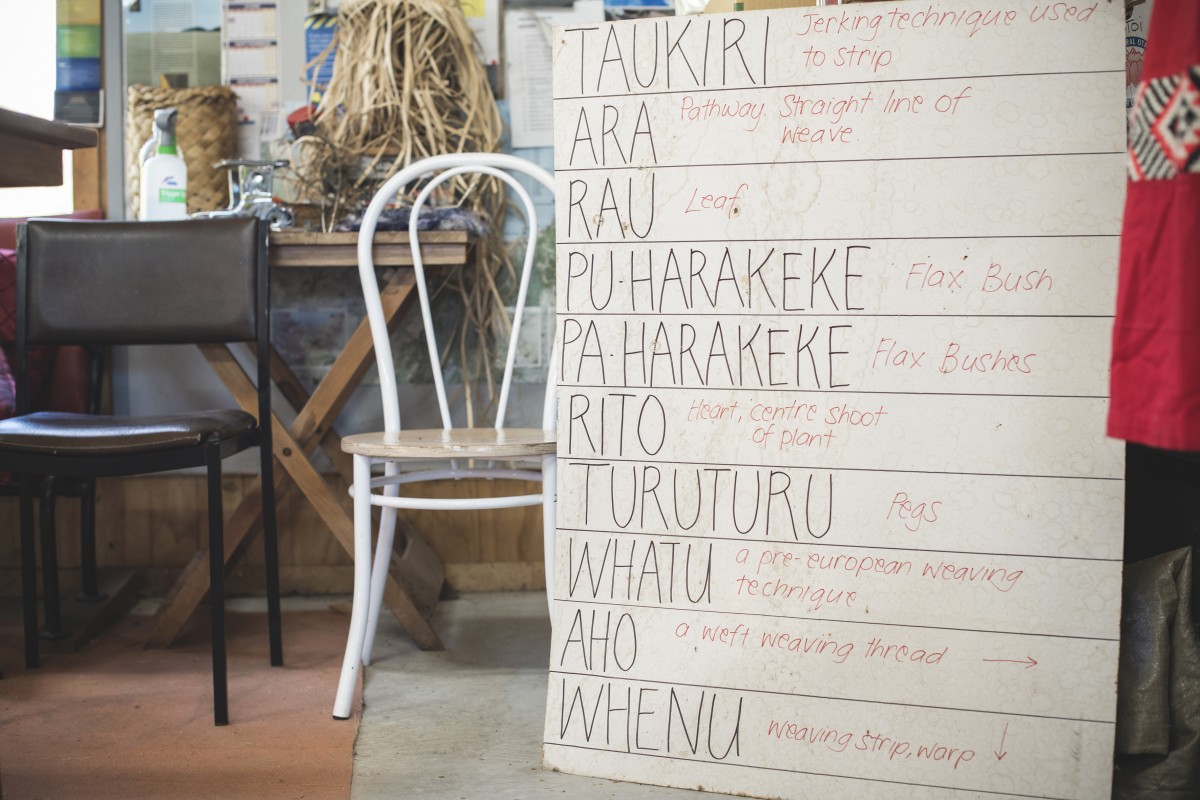 TAUKIRI Jerking technique used
to strip
ARA Pathway. Straight line of
weave.
RAU Leaf
PU·HARAKEKE Flax Bush
PA·HARAKEKE Flax Bushes
RITO Heart, centre shoot
of plant
TURUTURU Pegs
WHATU a pre-european weaving
technique
AHO a weft weaving thread →
WHENU weaving strip, warp ↓